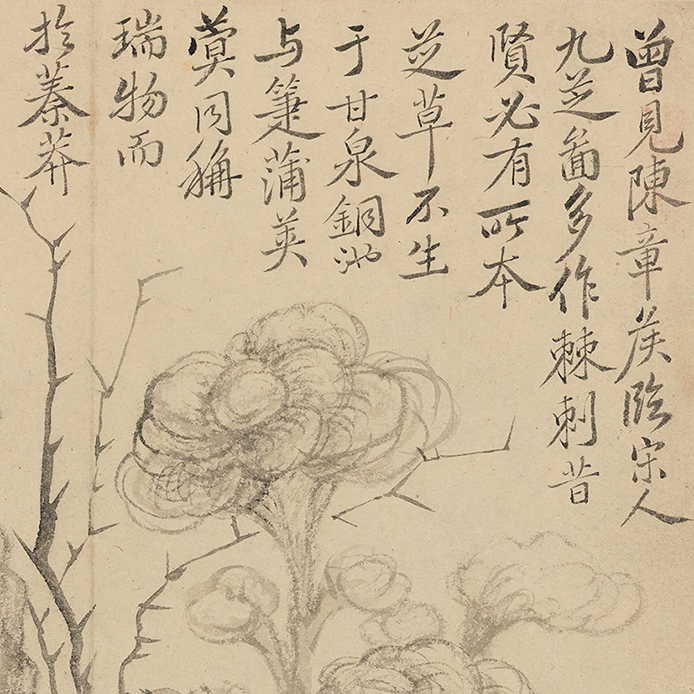 曾見陳章侯臨宋人
九芝圖多作棘刺昔
賢必有所本
芝草不生
于甘泉銅池
与箑蒲莢
蓂同稱
瑞物而
扵蓁莽